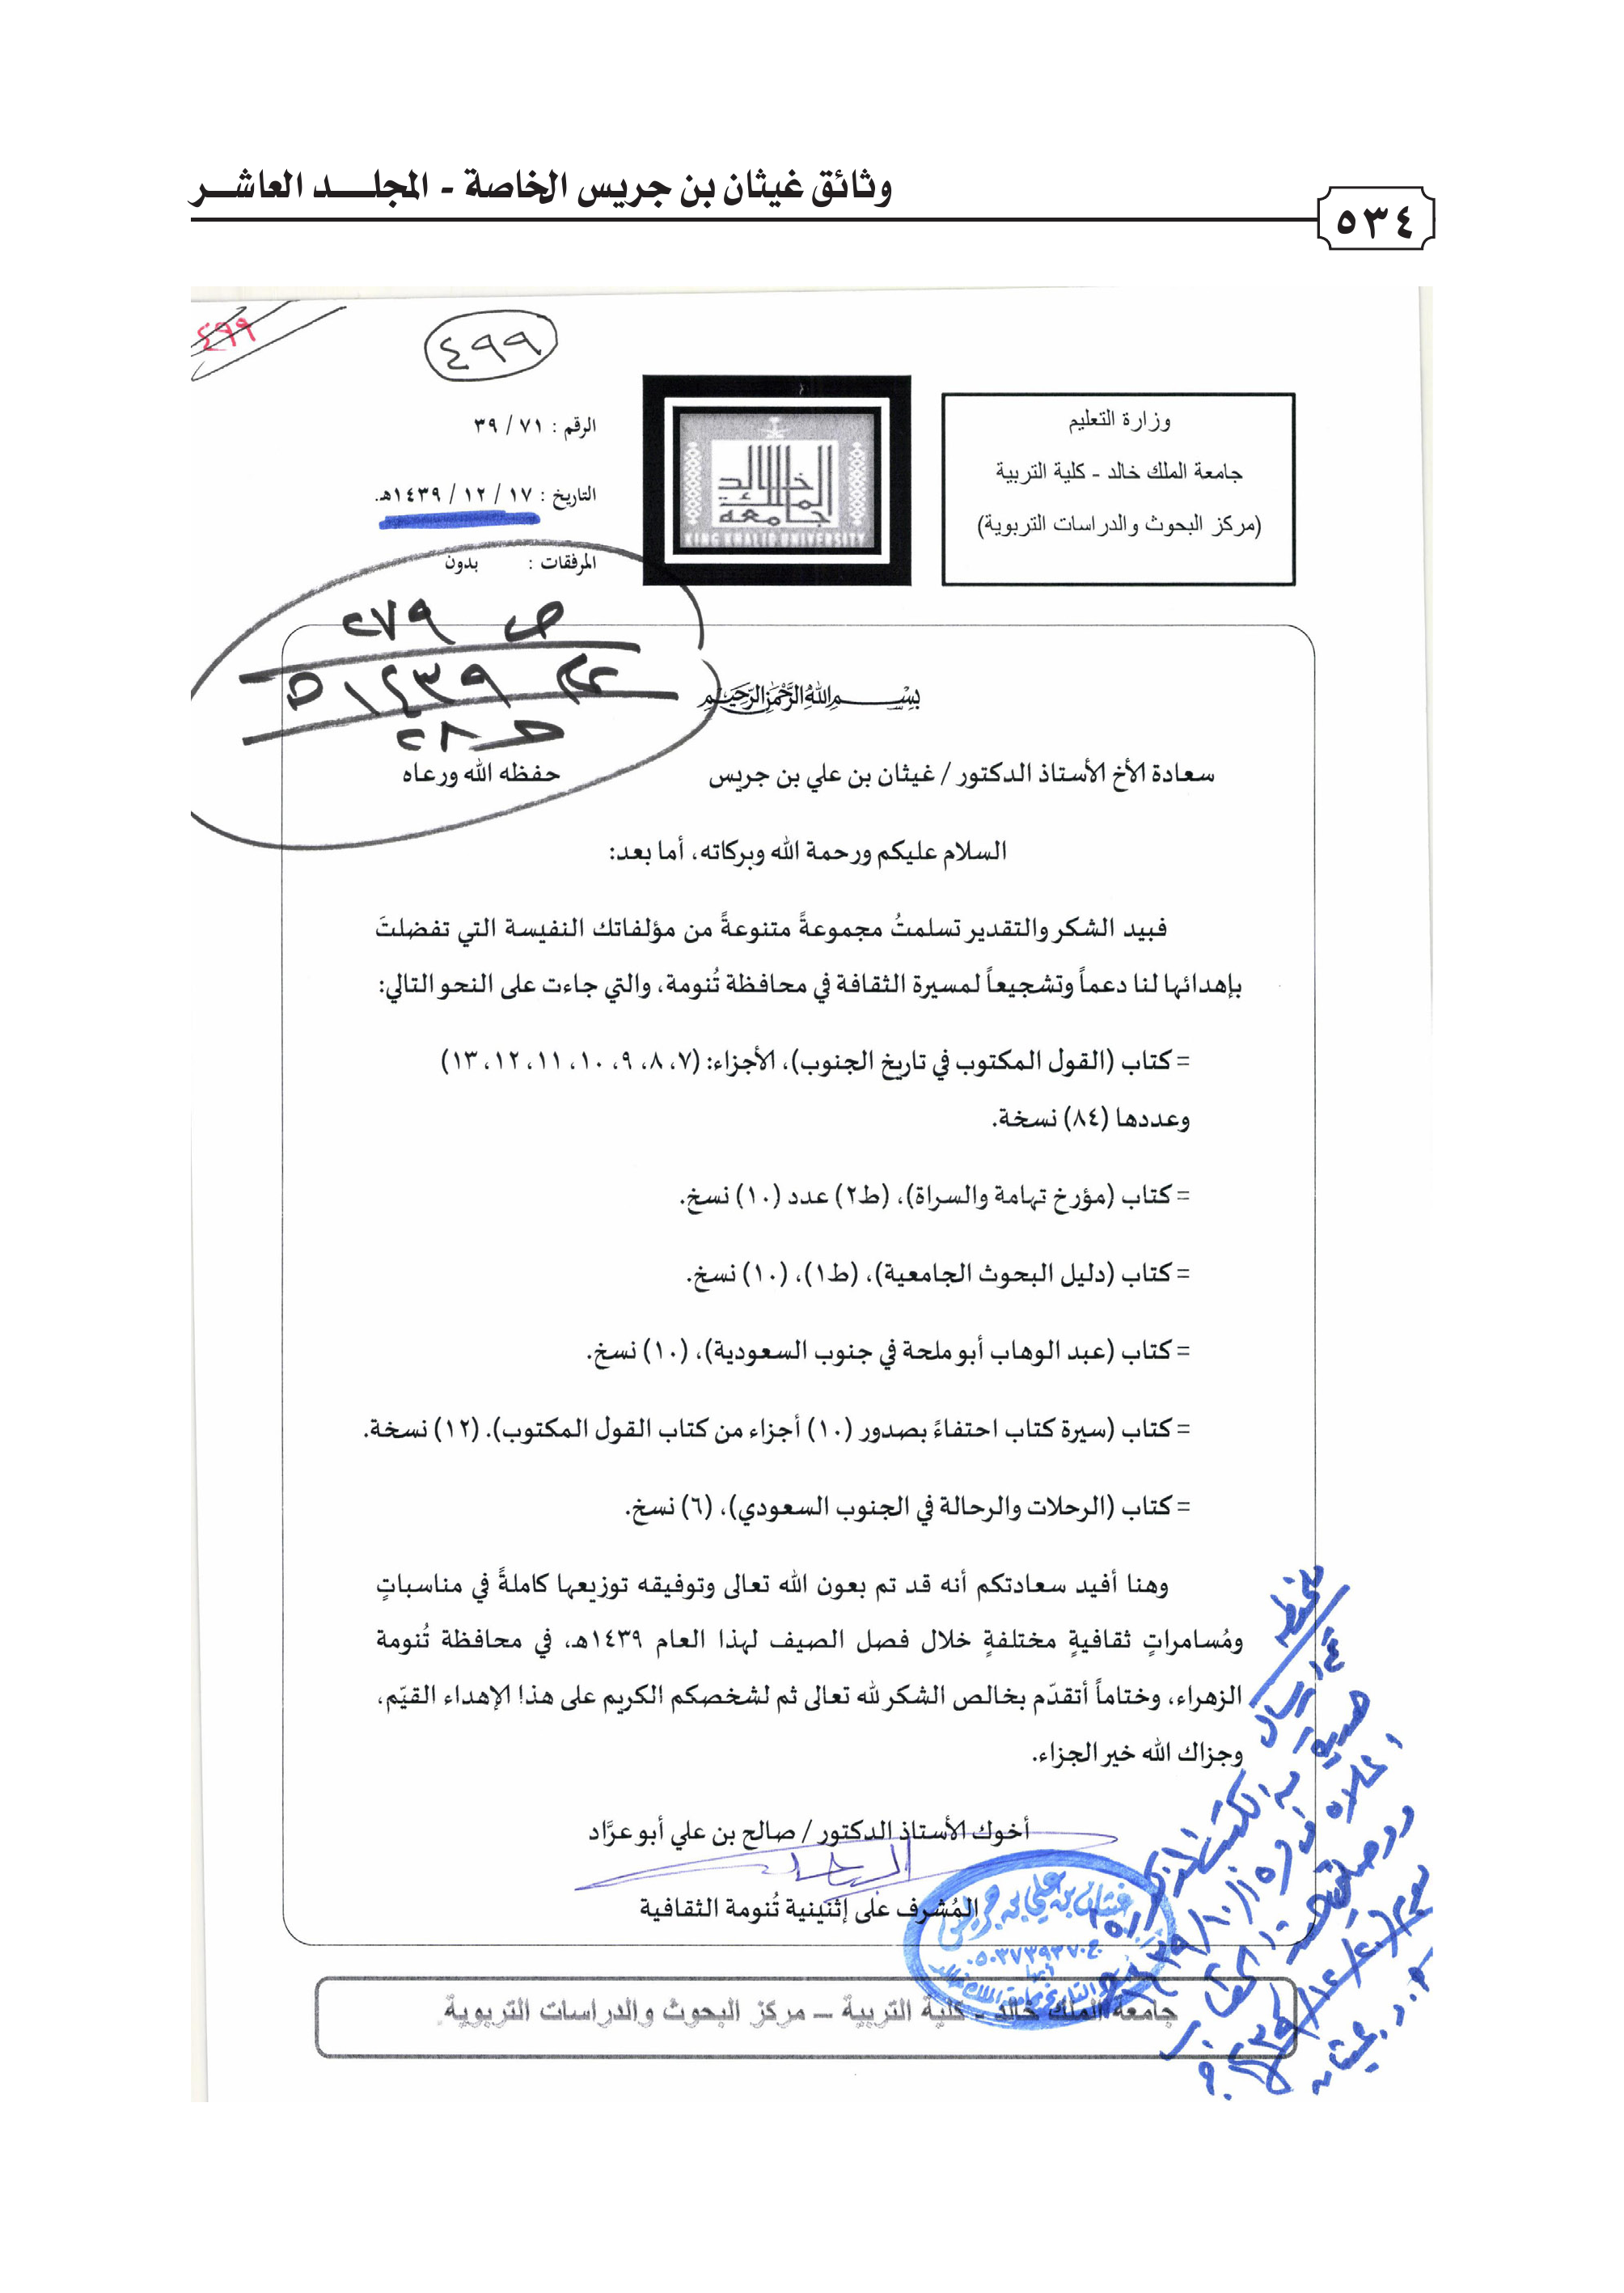 وثائق غيثان بن جريس الخاصة - المجلــد العاشــر
٥٣٤
٤٩٩
٤٩٩
وزارة التعليم
جامعة الملك خالد - كلية التربية
(مركز البحوث والدراسات التربوية)
جامعة الملك خالد
KING KHALID UNIVERSITY
الرقم : ٧١ / ٣٩
التاريخ : ١٧ / ١٢ / ١٤٣٩هـ.
المرفقات : بدون
ص ٢٧٩
١٤٣٩هـ
ط ٢٨
بسم الله الرحمن الرحيم
سعادة الأخ الأستاذ الدكتور / غيثان بن علي بن جريس حفظه الله ورعاه
السلام عليكم ورحمة الله وبركاته، أما بعد:
فبيد الشكر والتقدير تسلمتُ مجموعةً متنوعةً من مؤلفاتك النفيسة التي تفضلتَ
بإهدائها لنا دعماً وتشجيعاً لمسيرة الثقافة في محافظة تُنومة، والتي جاءت على النحو التالي:
= كتاب (القول المكتوب في تاريخ الجنوب)، الأجزاء: (٧، ٨، ٩، ١٠، ١١، ١٢، ١٣)
وعددها (٨٤) نسخة.
= كتاب (مؤرخ تهامة والسراة)، (ط٢) عدد (١٠) نسخ.
= كتاب (دليل البحوث الجامعية)، (ط١)، (١٠) نسخ.
= كتاب (عبد الوهاب أبو ملحة في جنوب السعودية)، (١٠) نسخ.
= كتاب (سيرة كتاب احتفاءً بصدور (١٠) أجزاء من كتاب القول المكتوب). (١٢) نسخة.
= كتاب (الرحلات والرحالة في الجنوب السعودي)، (٦) نسخ.
وهنا أفيد سعادتكم أنه قد تم بعون الله تعالى وتوفيقه توزيعها كاملةً في مناسباتٍ
ومُسامراتٍ ثقافيةٍ مختلفةٍ خلال فصل الصيف لهذا العام ١٤٣٩هـ، في محافظة تُنومة
الزهراء، وختاماً أتقدّم بخالص الشكر لله تعالى ثم لشخصكم الكريم على هذا الإهداء القيّم،
وجزاك الله خير الجزاء.
أخوك الأستاذ الدكتور / صالح بن علي أبو عرَّاد
المُشرف على إثنينية تُنومة الثقافية
غيثان بن علي بن جريس
ج ٠٥٠٣٧٣٩٣٧٠
أبها
جامعة الملك خالد - كلية التربية – مركز البحوث والدراسات التربوية.